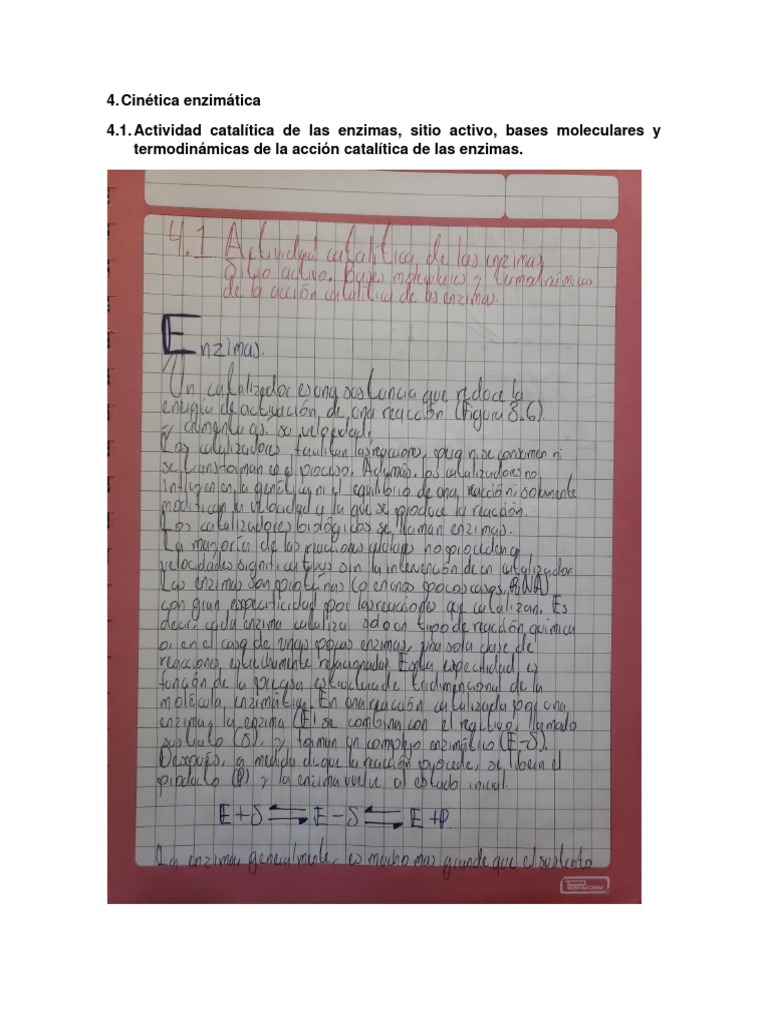 4. Cinética enzimática
4.1. Actividad catalítica de las enzimas, sitio activo, bases moleculares y
termodinámicas de la acción catalítica de las enzimas.
4.1 Actividad catalítica de las enzimas,
Sitio activo. Bases moleculares y termodinámicas
de la acción catalítica de las enzimas.
Enzimas.
Un catalizador es una sustancia que reduce la
energía de activación, de una reacción (Figura 8.6).
y aumenta su velocidad.
Los catalizadores facilitan las reacciones, pero ni se consumen ni
se transforman en el proceso. Además, los catalizadores no
influyen en la ni el equilibrio de una reacción; solamente
modifican la velocidad a la que se produce la reacción.
Los catalizadores biológicos se llaman enzimas.
La mayoría de las reacciones celulares no proceden a
velocidades significativas sin la intervención de un catalizador
Las enzimas son proteínas (o en unos pocos casos, RNA)
con gran especificidad por las reacciones que catalizan. Es
decir, cada enzima cataliza solo un tipo de reacción química
o, en el caso de unas pocas enzimas, una sola clase de
reacciones estrechamente relacionadas. Esta es
función de la precisa estructura tridimensional de la
molécula enzimática. En una reacción catalizada por una
enzima, la enzima (E) se combina con el reactivo, llamado
sustrato (S), y forman un complejo enzimático (E-S).
Después, a medida de que la reacción procede, se libera el
producto (P) y la enzima vuelve al estado inicial.
E+S ⇌ E-S ⇌ E+P
La enzima, generalmente, es mucho mas grande que el sustrato
PRINTAFORM